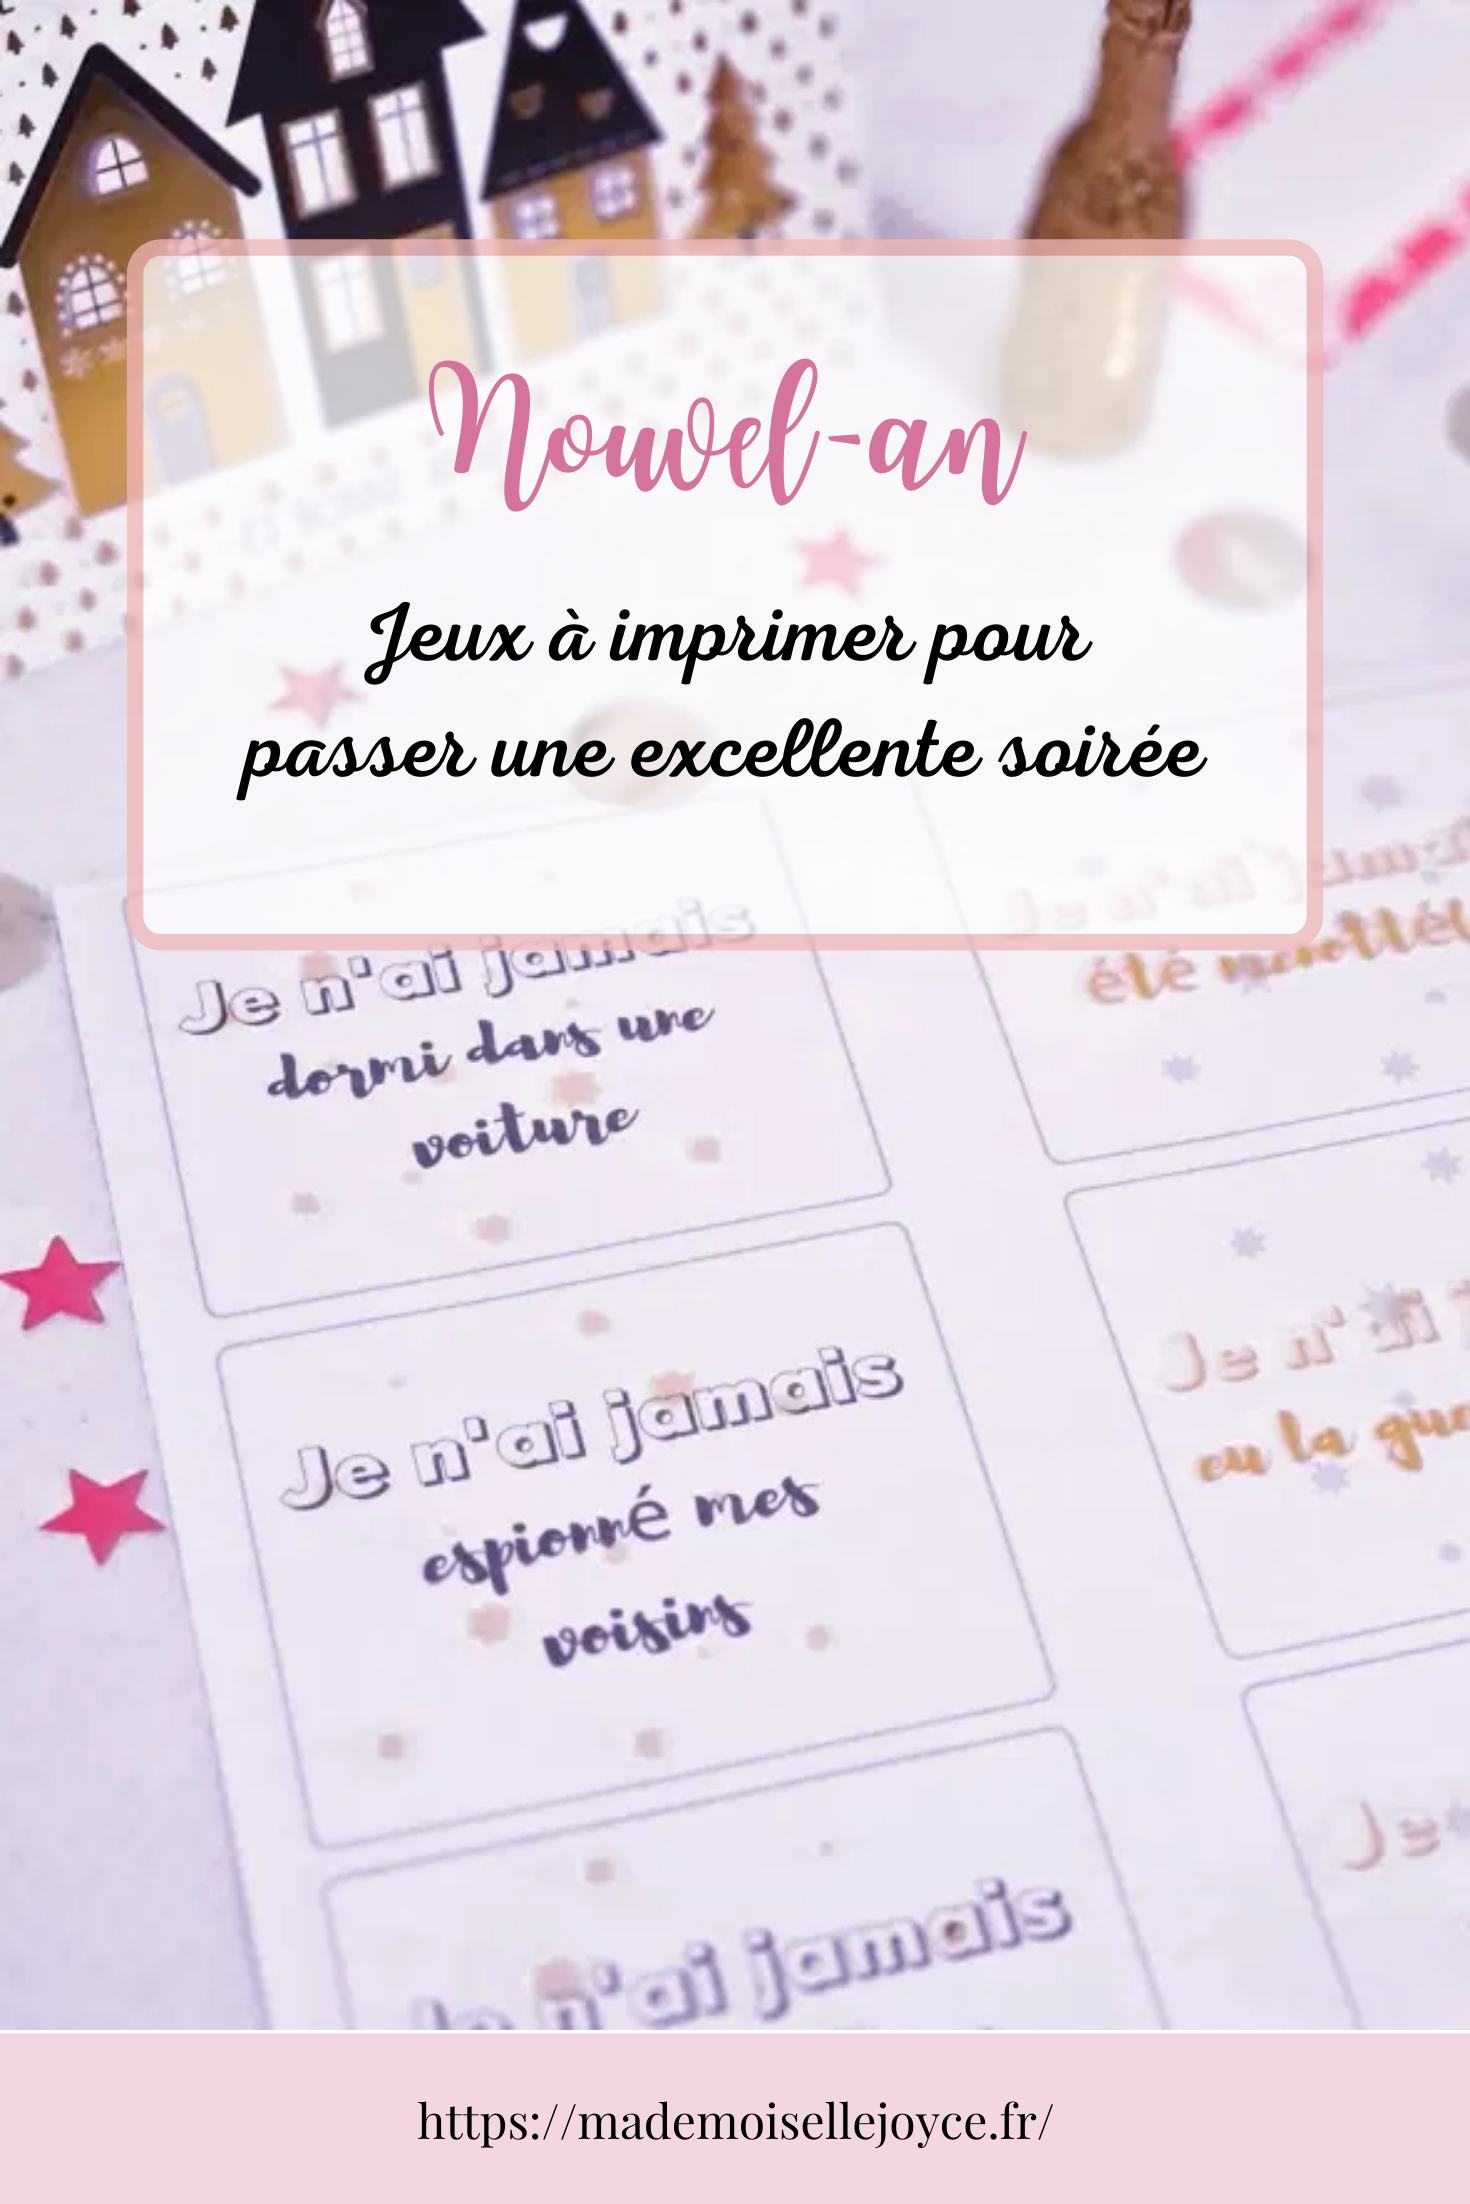 Nouvel-an
Jeux à imprimer pour
passer une excellente soirée
Je n'ai jamais
dormi dans une
voiture
Je n'ai jamais
été menotté
Je n'ai
eu la
Je n'ai jamais
espionné mes
voisins
Je
Je n'ai jamais
https://mademoisellejoyce.fr/